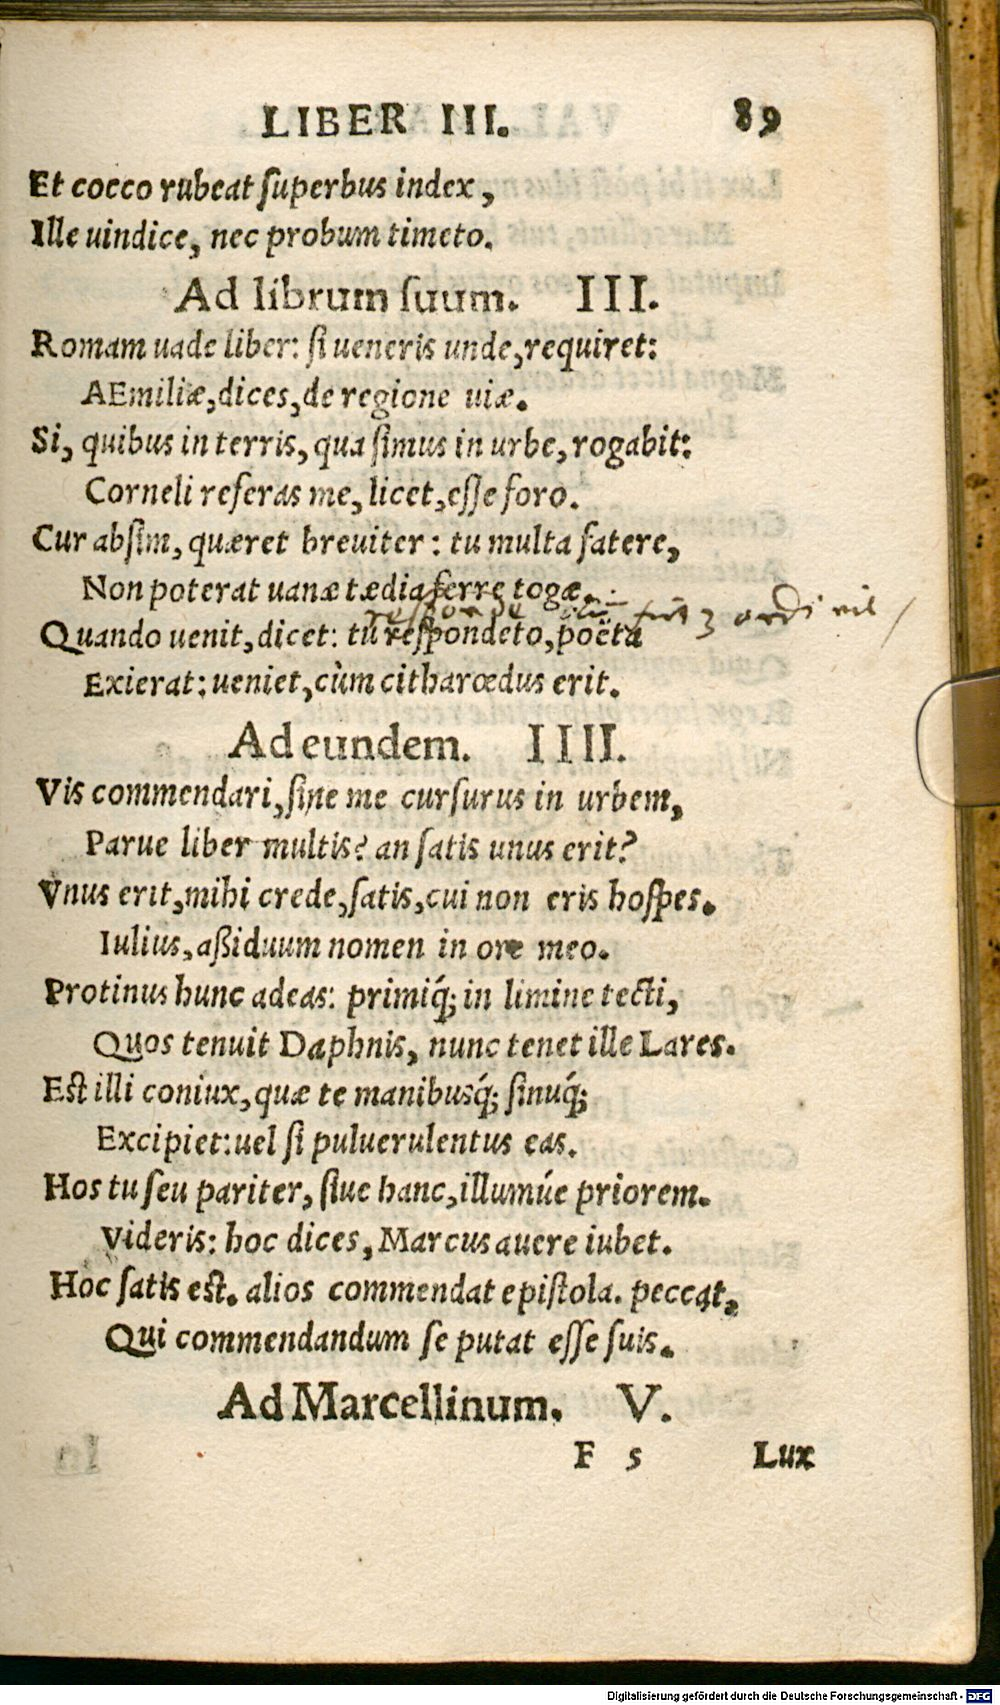 LIBER III. 89
Et cocco rubeat ſuperbus index,
Ille uindice, nec probum timeto.
Ad librum ſuum. III.
Romam uade liber: ſi ueneris unde, requiret:
AEmiliæ, dices, de regione uiæ.
Si, quibus in terris, qua ſimus in urbe, rogabit:
Corneli referas me, licet, eſſe foro.
Cur abſim, quæret breuiter: tu multa fatere,
Non poterat uanæ tædia ferre togæ.
responde
Quando uenit, dicet: tu reſpondeto, poëta
Exierat: ueniet, cùm citharœdus erit.
Ad eundem. IIII.
Vis commendari, ſine me curſurus in urbem,
Parue liber multis? an ſatis unus erit?
Vnus erit, mihi crede, ſatis, cui non eris hoſpes.
Iulius, aßiduum nomen in ore meo.
Protinus hunc adeas: primiq́; in limine tecti,
Quos tenuit Daphnis, nunc tenet ille Lares.
Eſt illi coniux, quæ te manibusq́; ſinuq́;
Excipiet: uel ſi puluerulentus eas.
Hos tu ſeu pariter, ſiue hanc, illumúe priorem.
Videris: hoc dices, Marcus auere iubet.
Hoc ſatis eſt. alios commendat epiſtola. peccat,
Qui commendandum ſe putat eſſe ſuis.
Ad Marcellinum. V.
F 5 Lux
Digitalisierung gefördert durch die Deutsche Forschungsgemeinschaft - DFG